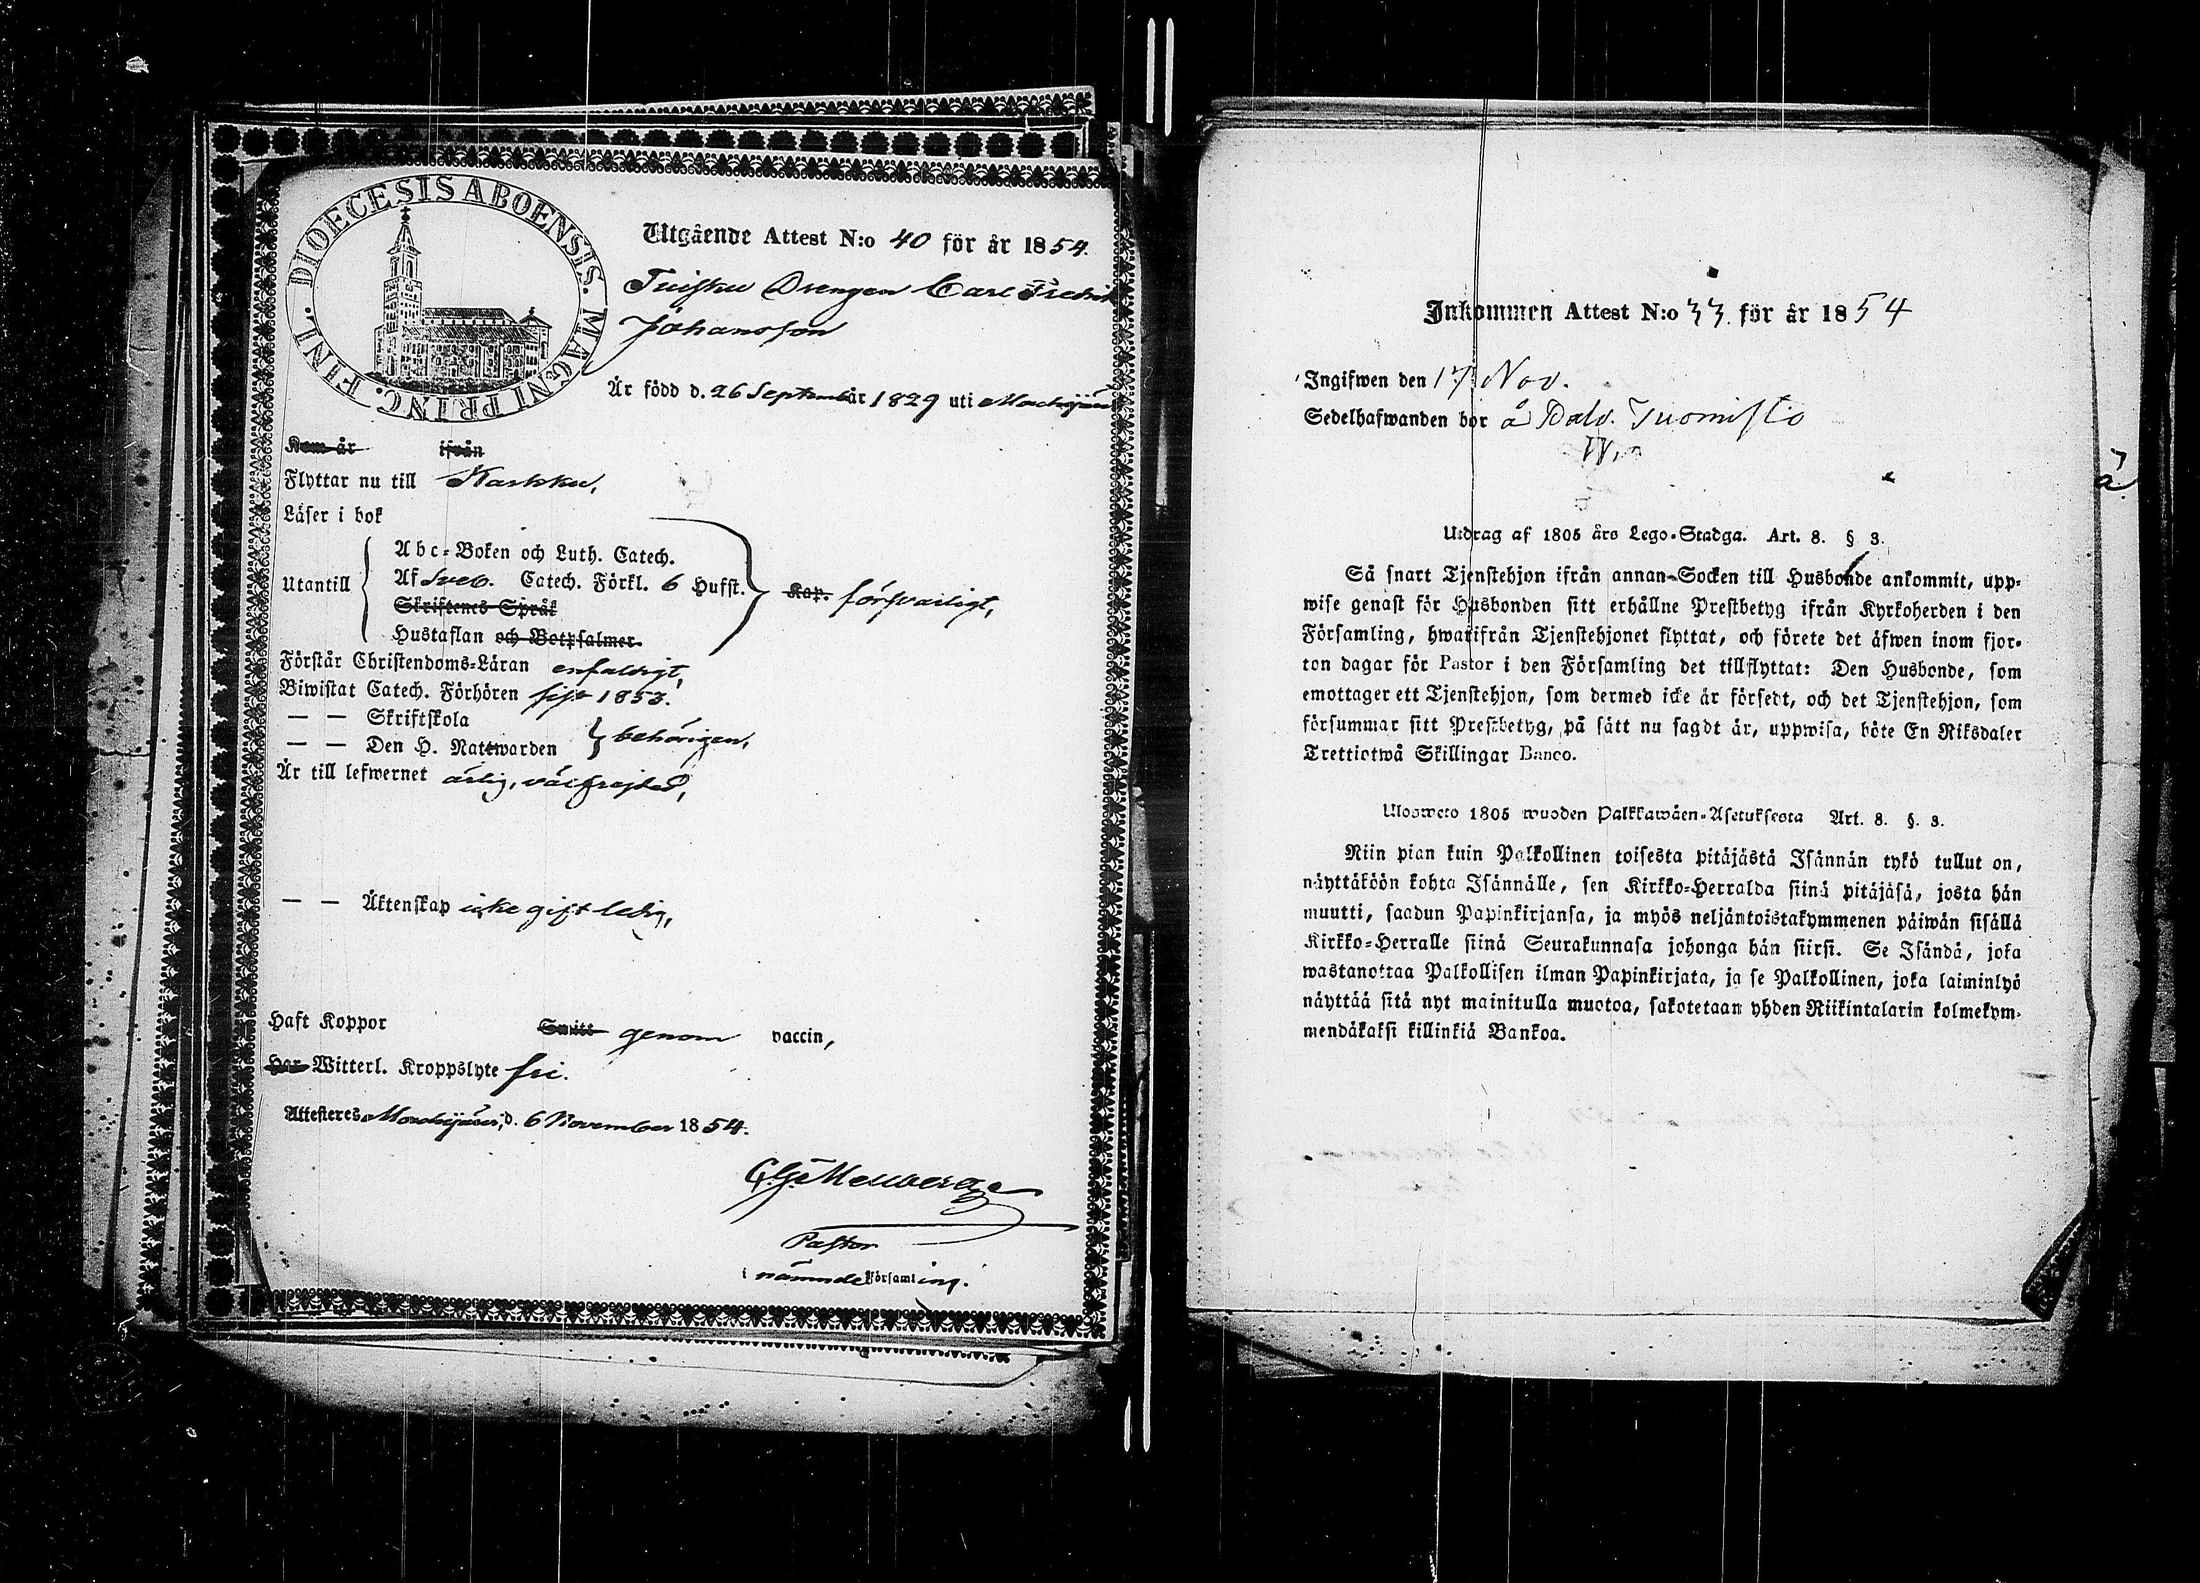 DIOECESIS ABOENSIS. MAGNI PRINC. FINL.
Utgående Attest N:o 40 för år 1854.
Drengen Carl Fredrik
Johansson
Är född d. 26 September år 1829 uti
Kom år ifrån
Flyttar nu till Karkku,
Läser i bok
Utantill
Abc-Boken och Luth. Catech.
Af Sveb. Catech. Förkl. 6 Hufst.
Skriftenes Språk
Hustaflan och Botpsalmer.
Kap. försvarligt,
Förstår Christendoms-Läran enfaldigt,
Biwistat Catech. Förhören sist 1853.
— — Skriftskola
— — Den H. Nattwarden
behörigen,
Är till lefwernet ärlig, välfrejdad,
— — Äktenskap icke gift ledig,
Haft Koppor Smitt genom vaccin,
Har Witterl. Kroppslyte fri.
Attesteres d. 6 November 1854.
Pastor
i nämnde Församling.
Inkommen Attest N:o 33. för år 1854
Ingifwen den 17 Nov.
Sedelhafwanden bor å Tuomisto
Utdrag af 1805 års Lego-Stadga. Art. 8. § 3.
Så snart Tjenstehjon ifrån annan Socken till Husbonde ankommit, upp-
wise genast för Husbonden sitt erhållne Prestbetyg ifrån Kyrkoherden i den
Församling, hwarifrån Tjenstehjonet flyttat, och förete det äfwen inom fjor-
ton dagar för Pastor i den Församling det tillflyttat: Den Husbonde, som
emottager ett Tjenstehjon, som dermed icke är försedt, och det Tjenstehjon, som
försummar sitt Prestbetyg, på sätt nu sagdt är, uppwisa, böte En Riksdaler
Trettiotwå Skillingar Banco.
Ulosweto 1805 wuoden Palkkawäen-Asetuksesta Art. 8. §. 3.
Niin pian kuin Palkollinen toisesta pitäjästä Isännän tykö tullut on,
näyttäköön kohta Isännälle, sen Kirkko-Herralda siinä pitäjäsä, josta hän
muutti, saadun Papinkirjansa, ja myös neljäntoistakymmenen päiwän sisällä
Kirkko-Herralle siinä Seurakunnasa johonga hän siirsi. Se Isändä, joka
wastanottaa Palkollisen ilman Papinkirjata, ja se Palkollinen, joka laiminlyö
näyttää sitä nyt mainitulla muotoa, sakotetaan yhden Riikintalarin kolmekym-
mendäkaksi killinkiä Bankoa.